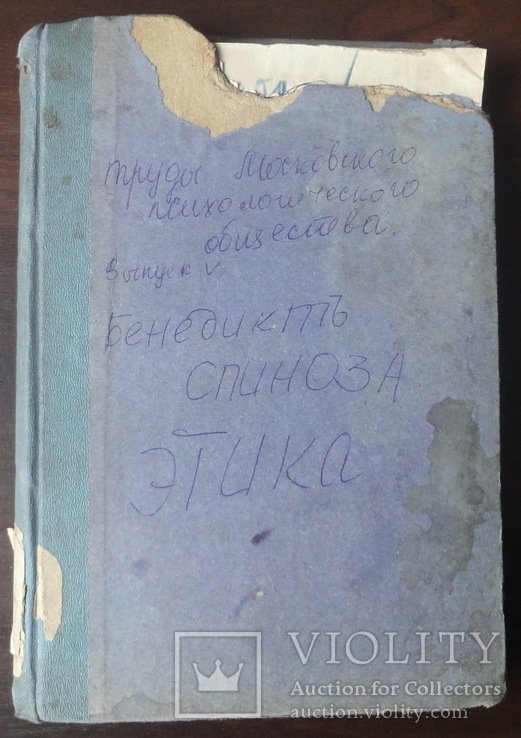 Труды Московского
психологического
общества.
Выпуск V.
Бенедиктъ
СПИНОЗА
ЭТИКА
VIOLITY
Auction for Collectors
auction.violity.com